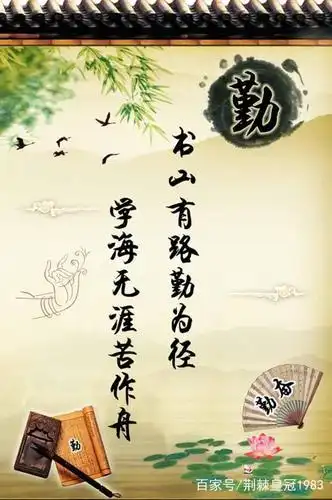 勤
书山有路勤为径
学海无涯苦作舟
勤奋
勤
百家号/荆棘皇冠1983